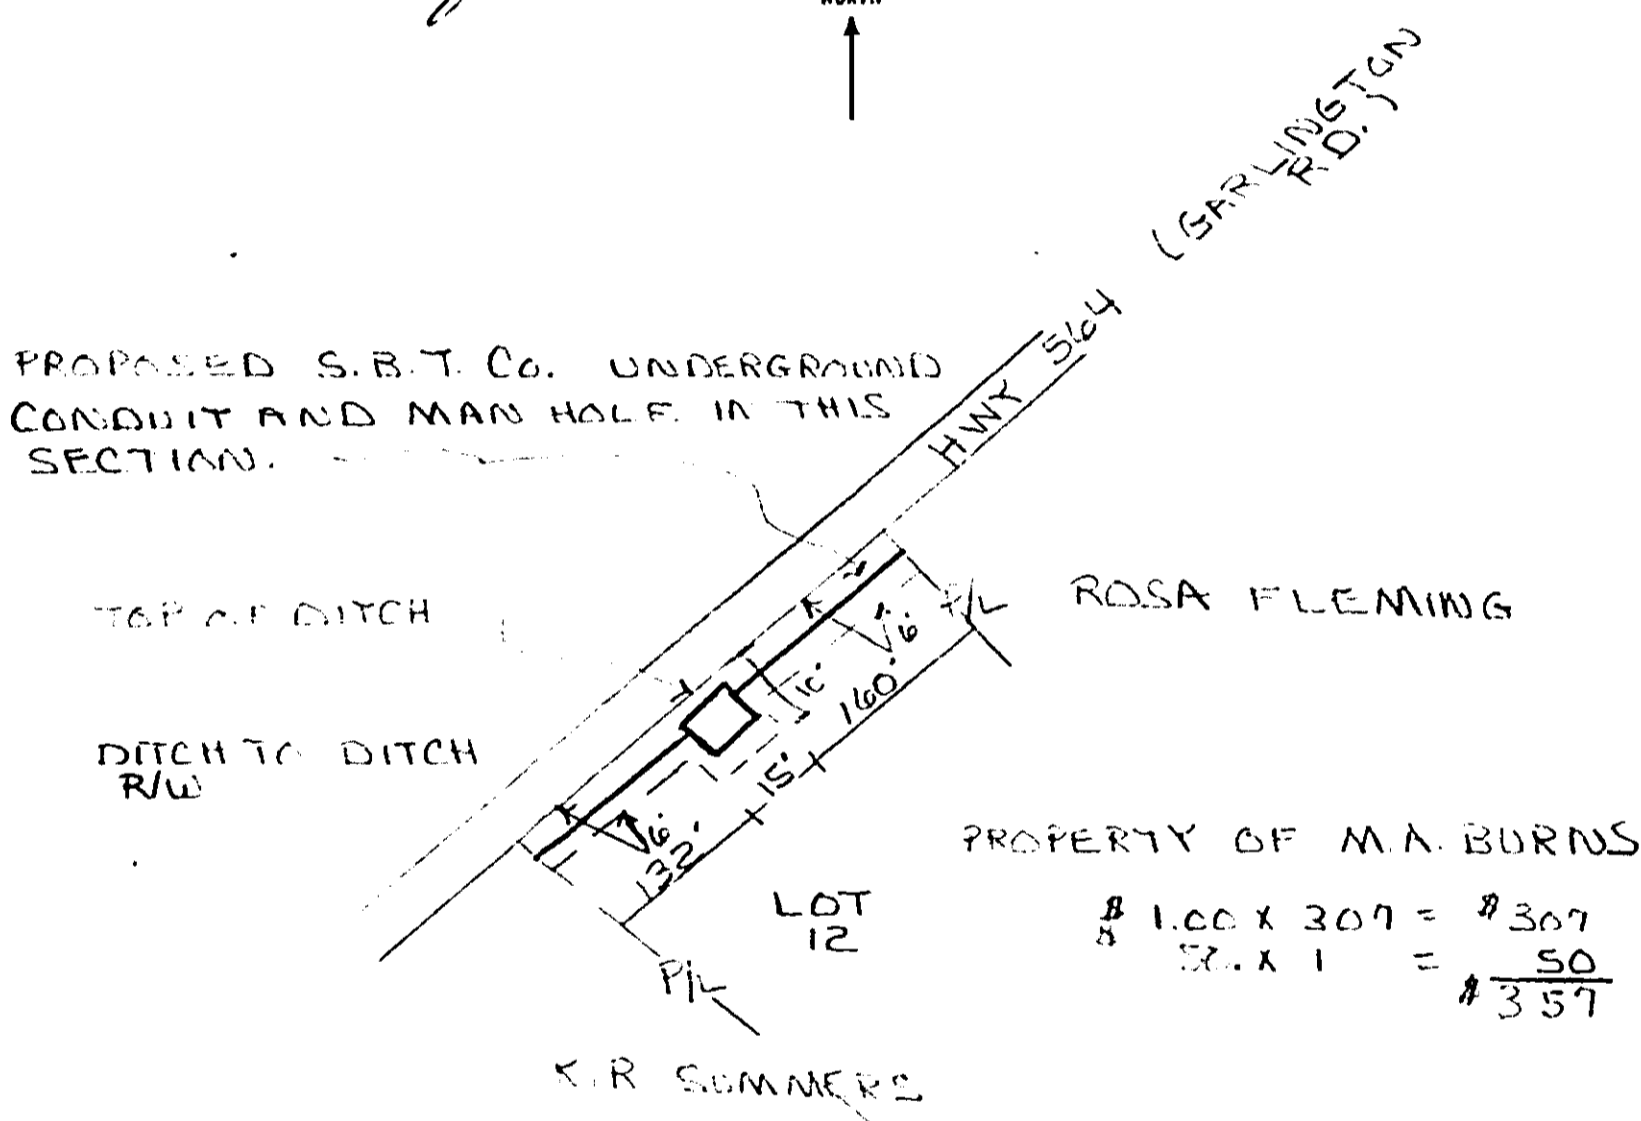 NORTH
(GARLINGTON
RD.)
HWY 564
PROPOSED S.B.T. Co. UNDERGROUND
CONDUIT AND MAN HOLE IN THIS
SECTION.
TOP OF DITCH
P/L
ROSA FLEMING
6'
10'
160'
DITCH TO DITCH
R/W
15'
6'
132'
PROPERTY OF M.A. BURNS
LOT
12
$ 1.00 X 307 = $307
50. X 1 = 50
$357
P/L
R SUMMERS